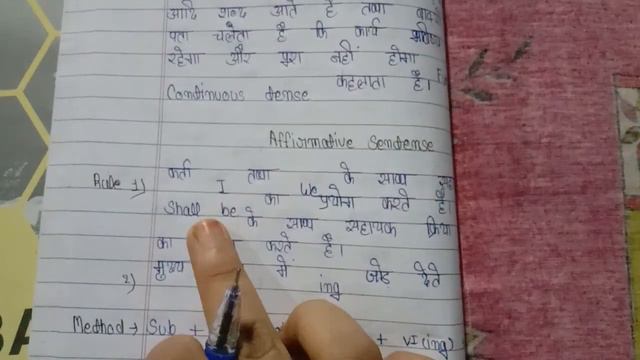 आदि शब्द आते हैं तथा
पता चलता है कि कार्य
रहेगा और पूरा नहीं होगा
Condinuous dense कहलाता है।
Affirmadive Sendense
Rule 1) कर्ता I तथा We के साथ
Shall be का प्रयोग करते हैं।
के साथ सहायक क्रिया
का करते हैं।
2) मुख्य में ing जोड़ देते
Medhod → Sub + + VI (ing)